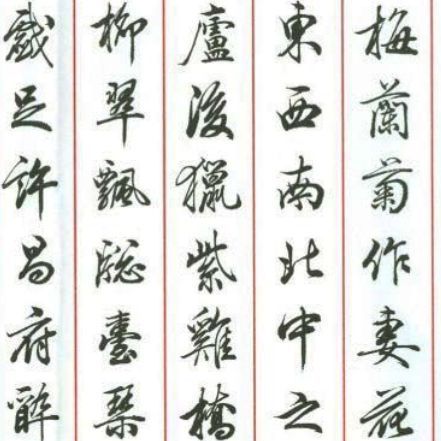 梅蘭菊作妻花
東西南北中之
廬後獵紫雞橋
柳翠飄臺琴
戲足許昌府醉